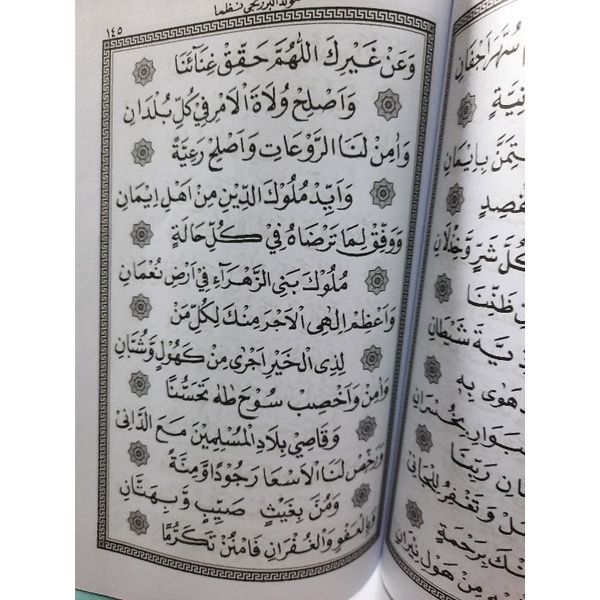 ١٤٥
مولد البرزنجي نظما
وَعَنْ غَيْرِكَ اللّٰهُمَّ حَقِّقْ غِنَآئَنَا
وَاَصْلِحْ وُلَاةَ الْاَمْرِ فِيْ كُلِّ بُلْدَانِ
وَاٰمِنْ لَنَا الرَّوْعَاتِ وَاَصْلِحْ رَعِيَّةً
وَاَيِّدْ مُلُوْكَ الدِّيْنِ مِنْ اَهْلِ اِيْمَانِ
وَوَفِّقْ لِمَا تَرْضَاهُ فِيْ كُلِّ حَالَةٍ
مُلُوْكَ بَنِى الزَّهْرَآءِ فِيْ اَرْضِ نُعْمَانِ
وَاَعْظِمْ اِلٰهِى الْاَجْرَ مِنْكَ لِكُلِّ مَنْ
لِذِى الْخَيْرِ اَجْرٰى مِنْ كُهُوْلٍ وَّشُبَّانِ
وَاٰمِنْ وَاَخْصِبْ سُوْحَ طٰهٰ تَحَسُّنًا
وَقَاصِيْ بِلَادِ الْمُسْلِمِيْنَ مَعَ الدَّانِىْ
وَرَخِّصْ لَنَا الْاَسْعَارَ جُوْدًا وَّمِنَّةً
وَمُنَّ بِغَيْثٍ صَيِّبٍ وَّبِهَتَّانِ
وَبِالْعَفْوِ وَالْغُفْرَانِ فَامْنُنْ تَكَرُّمًا
سُهَّرَ اَجْفَانِ
بِاِيْمَانِ
كُلَّ شَرٍّ وَّخِذْلَانِ
ظَنَّنَا
شَيْطَانِ
هَوٰى بِهٖ
رَبَّنَا
وَتَغْفِرُ لِلْجَانِى
بِرَحْمَةٍ
مِنْ هَوْلِ نِيْرَانِ